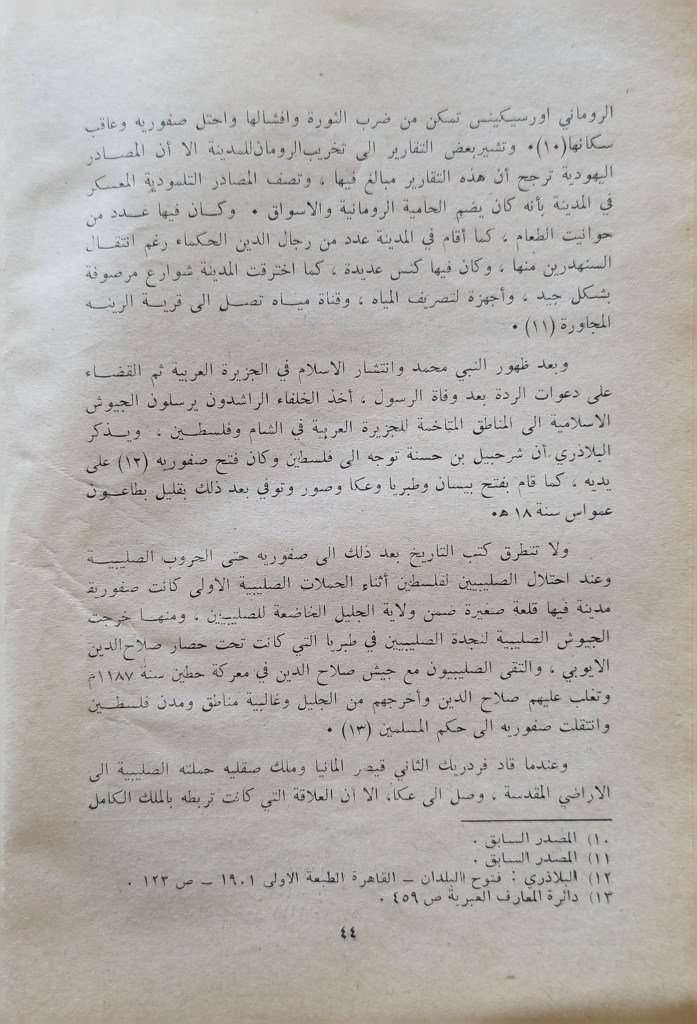 الروماني اورسيكينس تمكن من ضرب الثورة وافشالها واحتل صفوريه وعاقب
سكانها(١٠)٠ وتشيربعض التقارير الى تخريب الرومان للمدينة الا أن المصادر
اليهودية ترجح أن هذه التقارير مبالغ فيها ، وتصف المصادر التلمودية المعسكر
في المدينة بأنه كان يضم الحامية الرومانية والاسواق ٠ وكان فيها عدد من
حوانيت الطعام ، كما أقام في المدينة عدد من رجال الدين الحكماء رغم انتقال
السنهدرين منها ، وكان فيها كنس عديدة ، كما اخترقت المدينة شوارع مرصوفة
بشكل جيد ، وأجهزة لتصريف المياه ، وقناة مياه تصل الى قرية الرينه
المجاورة (١١) ٠
وبعد ظهور النبي محمد وانتشار الاسلام في الجزيرة العربية ثم القضاء
على دعوات الردة بعد وفاة الرسول ، أخذ الخلفاء الراشدون يرسلون الجيوش
الاسلامية الى المناطق المتاخمة للجزيرة العربية في الشام وفلسطين ، ويذكر
البلاذري أن شرحبيل بن حسنة توجه الى فلسطين وكان فتح صفوريه (١٢) على
يديه ، كما قام بفتح بيسان وطبريا وعكا وصور وتوفي بعد ذلك بقليل بطاعون
عمواس سنة ١٨ هـ٠
ولا تتطرق كتب التاريخ بعد ذلك الى صفوريه حتى الحروب الصليبية
وعند احتلال الصليبيين لفلسطين أثناء الحملات الصليبية الاولى كانت صفورية
مدينة فيها قلعة صغيرة ضمن ولاية الجليل الخاضعة للصليبيين ، ومنها خرجت
الجيوش الصليبية لنجدة الصليبيين في طبريا التي كانت تحت حصار صلاح الدين
الايوبي ، والتقى الصليبيون مع جيش صلاح الدين في معركة حطين سنة ١١٨٧م
وتغلب عليهم صلاح الدين وأخرجهم من الجليل وغالبية مناطق ومدن فلسطين
وانتقلت صفوريه الى حكم المسلمين (١٣) ٠
وعندما قاد فردريك الثاني قيصر المانيا وملك صقليه حملته الصليبية الى
الاراضي المقدسة ، وصل الى عكا، الا أن العلاقة التي كانت تربطه بالملك الكامل
١٠) المصدر السابق ٠
١١) المصدر السابق ٠
١٢) البلاذري : فتوح البلدان – القاهرة الطبعة الاولى ١٩٠١ – ص ١٢٣ ٠
١٣) دائرة المعارف العبرية ص ٤٥٩ ٠
٤٤